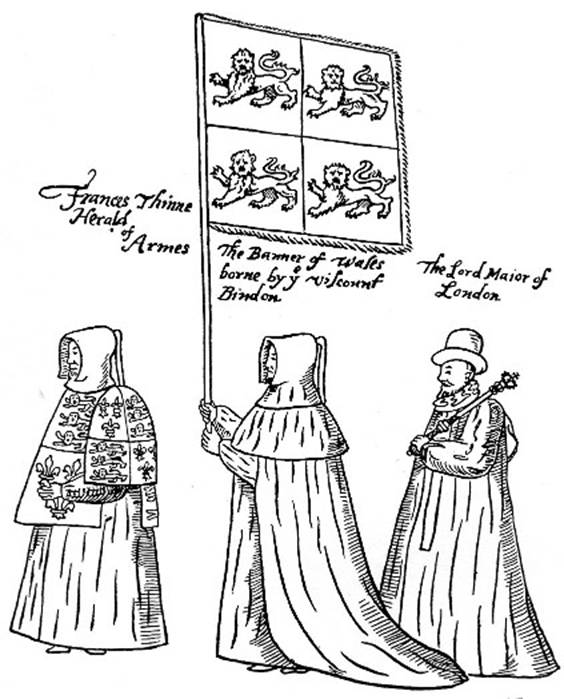 Frances Thinne
Herald
of
Armes
The Banner of Wales
borne by yͤ Viscount
Bindon
The Lord Maior of
London